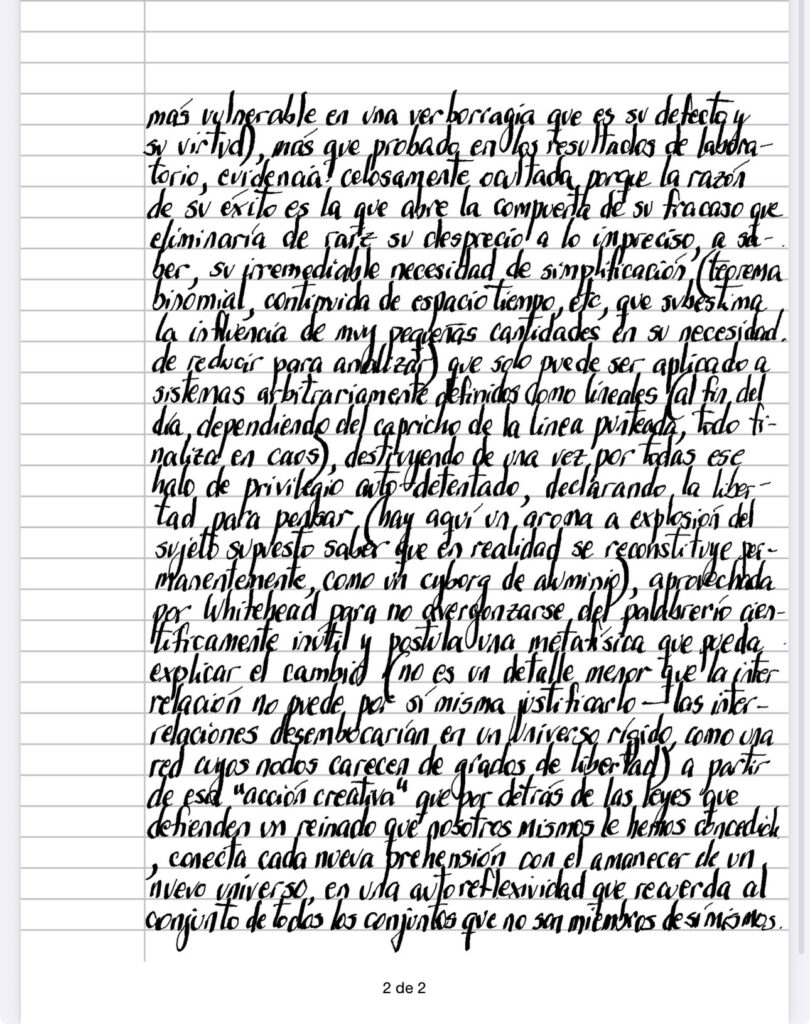 más vulnerable en una verborragia que es su defecto y
su virtud), más que probada en los resultados de labora-
torio, evidencia celosamente ocultada porque la razón
de su éxito es la que abre la compuerta de su fracaso que
eliminaría de raíz su desprecio a lo impreciso, a sa-
ber, su irremediable necesidad de simplificación (teorema
binomial, continuida de espacio tiempo, etc, que subestima
la influencia de muy pequeñas cantidades en su necesidad
de reducir para analizar) que solo puede ser aplicado a
sistemas arbitrariamente definidos como lineales (al fin del
día, dependiendo del capricho de la línea punteada, todo fi-
naliza en caos), destituyendo de una vez por todas ese
halo de privilegio auto-detentado, declarando la liber-
tad para pensar (hay aquí un aroma a explosión del
sujeto supuesto saber que en realidad se reconstituye per-
manentemente, como un cyborg de aluminio), aprovechada
por Whitehead para no avergonzarse del palabrerío cien-
tíficamente inútil y postula una metafísica que pueda
explicar el cambio (no es un detalle menor que la inter
relación no puede por sí misma justificarlo — las inter-
relaciones desembocarían en un Universo rígido, como una
red cuyos nodos carecen de grados de libertad) a partir
de esa "acción creativa" que por detrás de las leyes que
defienden un reinado que nosotros mismos le hemos concedido
, conecta cada nueva prehensión con el amanecer de un
nuevo universo, en una autoreflexividad que recuerda al
conjunto de todos los conjuntos que no son miembros de sí mismos.
2 de 2